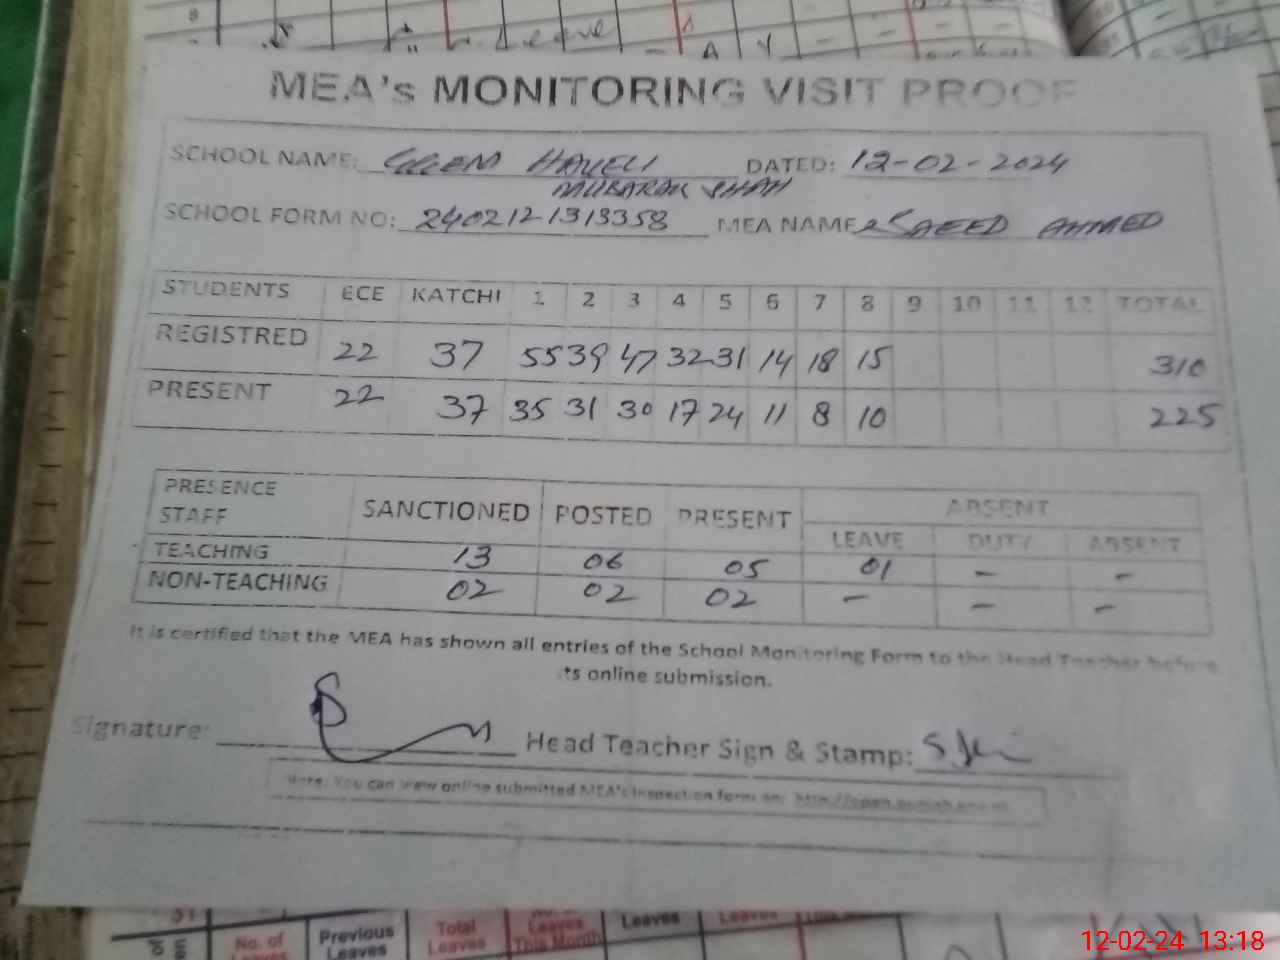 Leave
A
MEA's MONITORING VISIT PROOF
SCHOOL NAME: HAVELI DATED: 12-02-2024
MUBARAK SHAH
SCHOOL FORM NO: 2402121313358 MEA NAME SAEED AHMED
STUDENTS ECE KATCHI 1 2 3 4 5 6 7 8 9 10 11 12 TOTAL
REGISTRED 22 37 55 39 47 32 31 14 18 15 310
PRESENT 22 37 35 31 30 17 24 11 8 10 225
PRESENCE STAFF SANCTIONED POSTED PRESENT ABSENT
LEAVE DUTY ABSENT
TEACHING 13 06 05 01 - -
NON-TEACHING 02 02 02 - - -
It is certified that the MEA has shown all entries of the School Monitoring Form to the Head Teacher before
its online submission.
Signature: Head Teacher Sign & Stamp:
Note: You can view online submitted MEA's inspection form on:
31
No. of Leaves Previous Leaves Total Leaves No. of Leaves This Month Leaves Leaves
12-02-24 13:18